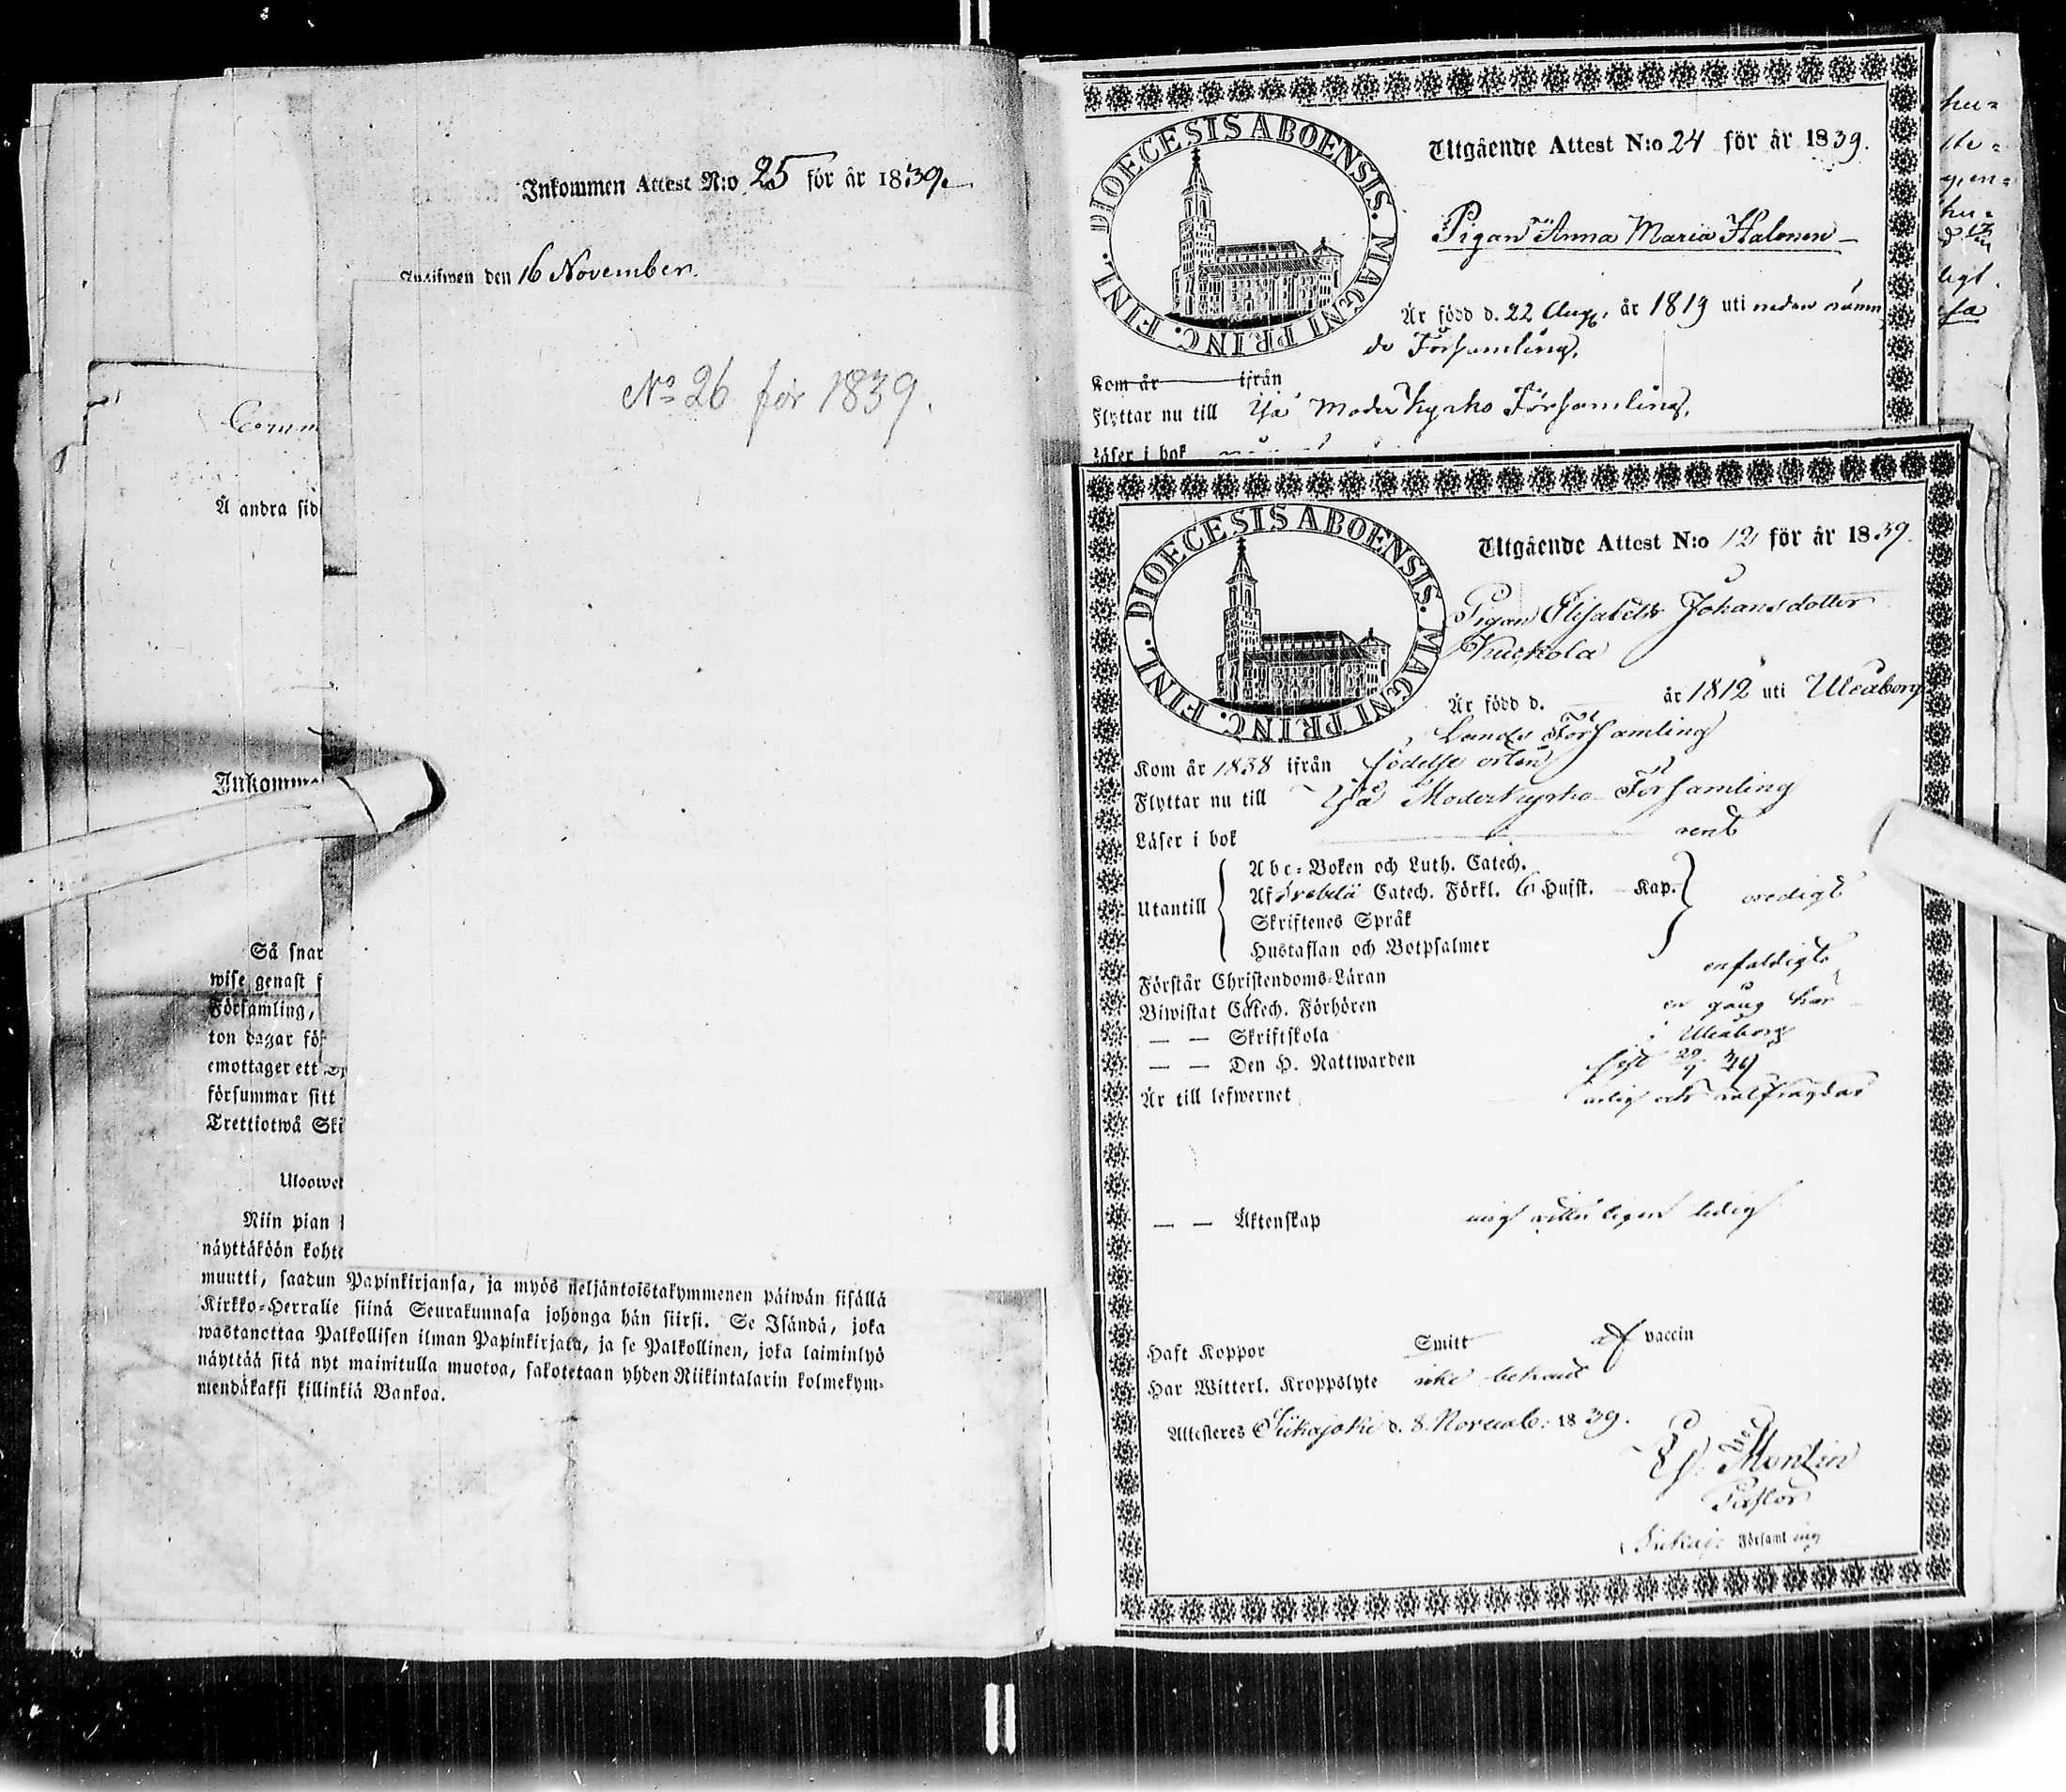 Inkommen Attest N:o 25 för år 1839.
den 16 November.
No 26 för 1839.
Å andra sid
Inkomme
Så snar
wise genast f
Församling,
ton dagar för
emottager ett
försummar sitt
Trettiotwå Ski
Niin pian
näyttäköön kohta
muutti, saadun Papinkirjansa, ja myös neljäntoistakymmenen päiwän sisällä
Kirkko-Herralle siinä Seurakunnasa johonga hän siirsi. Se Isändä, joka
wastanottaa Palkollisen ilman Papinkirjata, ja se Palkollinen, joka laiminlyö
näyttää sitä nyt mainitulla muotoa, sakotetaan yhden Riikintalarin kolmekym-
mendäkaksi killinkiä Bankoa.
DIOECESIS ABOENSIS. MAGNI PRINC. FINL.
Utgående Attest N:o 24 för år 1839.
Pigan Anna Maria Halonen
Är född d. 22 Aug. år 1819 uti nedan nämn
de Församling.
Kom år ifrån
Flyttar nu till Ijå Moder Kyrko Församling.
Läser i bok
DIOECESIS ABOENSIS. MAGNI PRINC. FINL.
Utgående Attest N:o 12 för år 1839.
Pigan Elisabeth Johansdotter
Är född d. år 1812 uti Uleåborgs
Lands Församling
Kom år 1838 ifrån födelse orten
Flyttar nu till Ijå Moderkyrko Församling
Läser i bok rent
Utantill
Abc-Boken och Luth. Catech.
Af Catech. Förkl. 6 Hufst. Kap.
Skriftenes Språk
Hustaflan och Botpsalmer
Förstår Christendoms-Läran enfaldigt
Biwistat Catech. Förhören en gång här
— — Skriftskola i Uleåborg
— — Den H. Nattwarden sist 29/9 39
Är till lefwernet ärlig och wälfrägdad
— — Äktenskap ledig
Haft Koppor Smitt af vaccin
Har Witterl. Kroppslyte icke bekant
Attesteres Siikajoki d. 8. Novemb: 1839.
Montin
Pastor
Siikaj: Församling